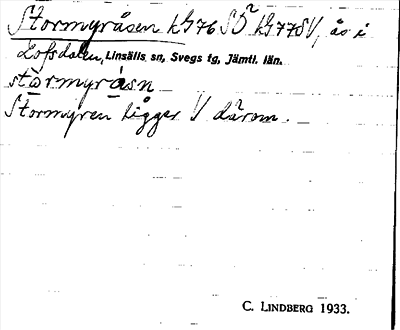 Stormyråsen kG76 SÖ kG77SV, ås i
Lofsdalen, Linsälls sn, Svegs tg, Jämtl. län.
stormyråsn
Stormyren ligger V därom.
C. LINDBERG 1933.